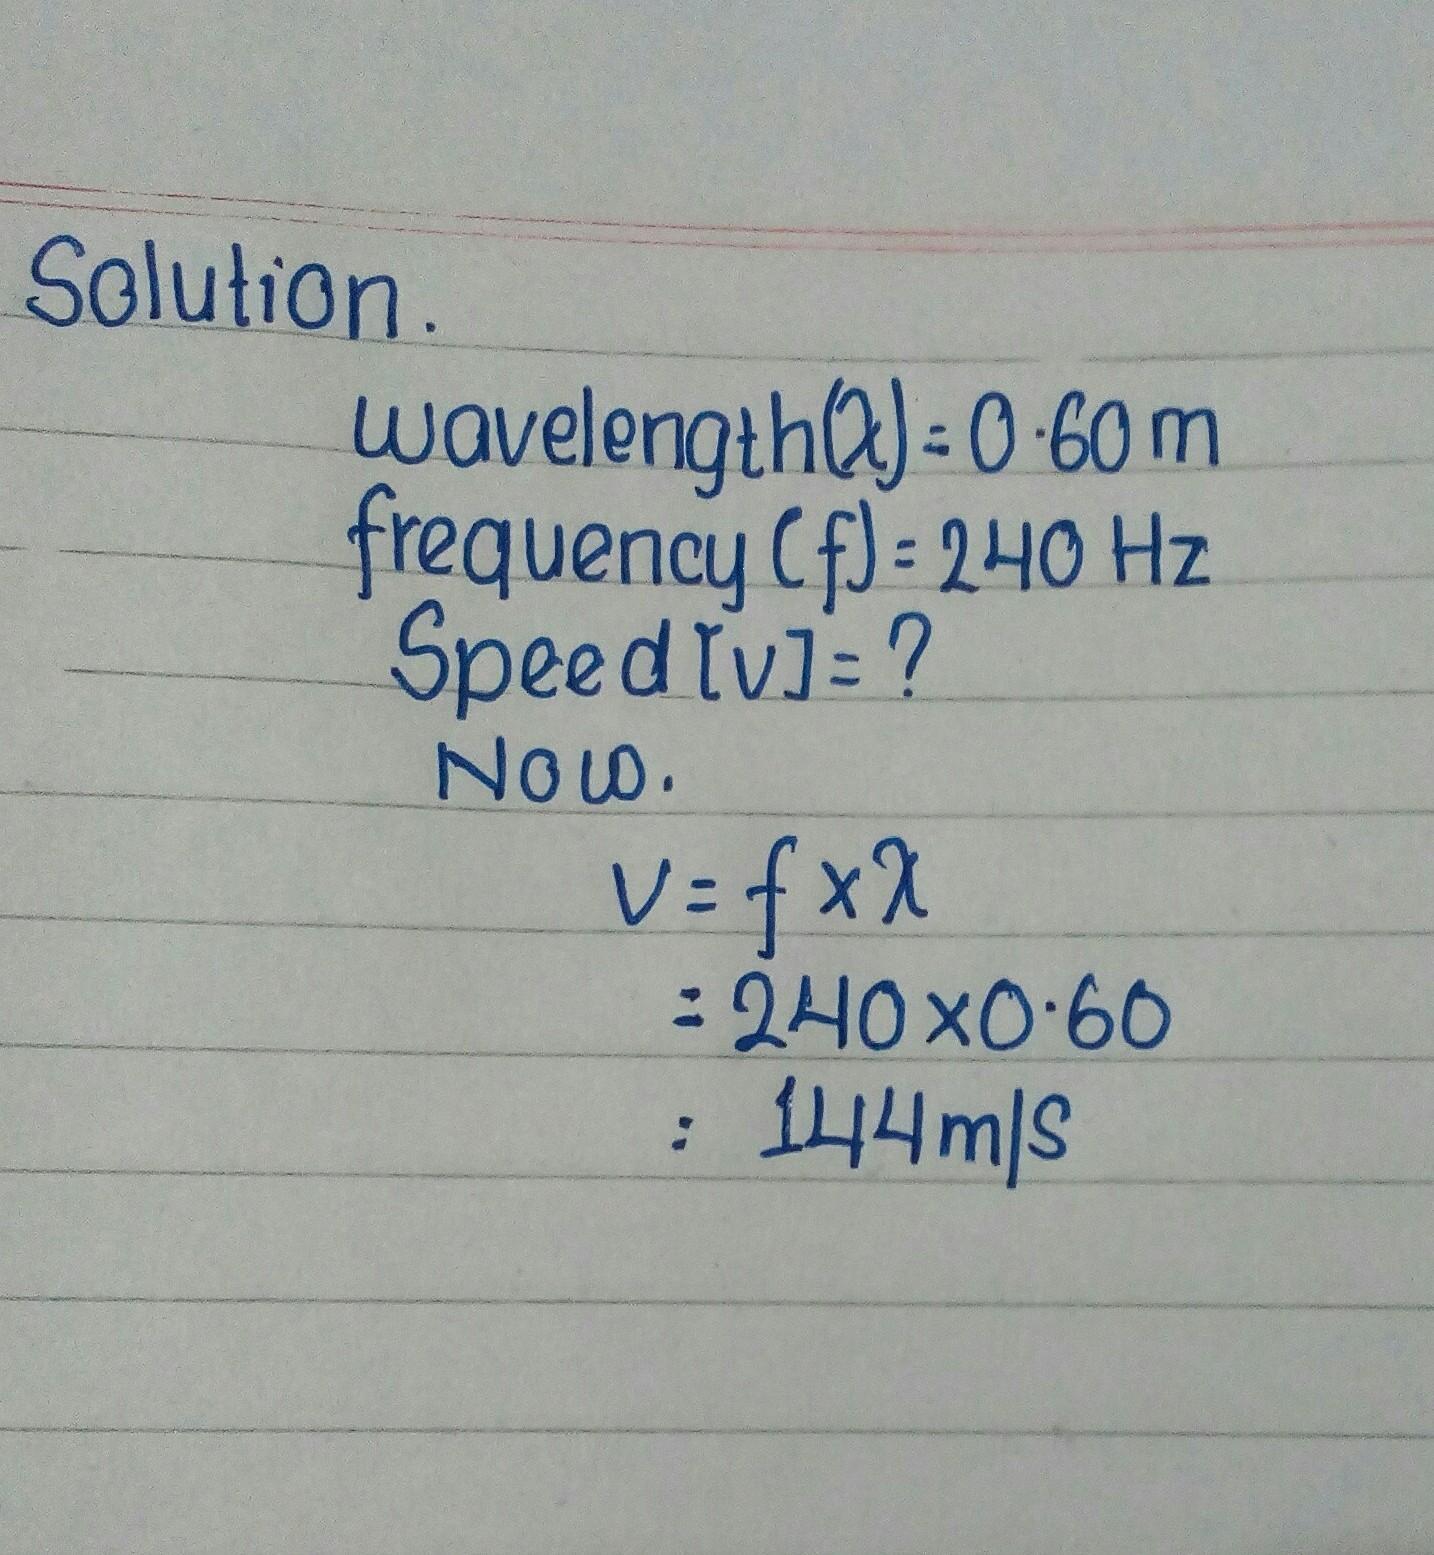 Solution.
wavelength(λ)=0.60m
frequency (f)=240 Hz
Speed [v]=?
Now.
v=f×λ
=240×0.60
= 144m/s